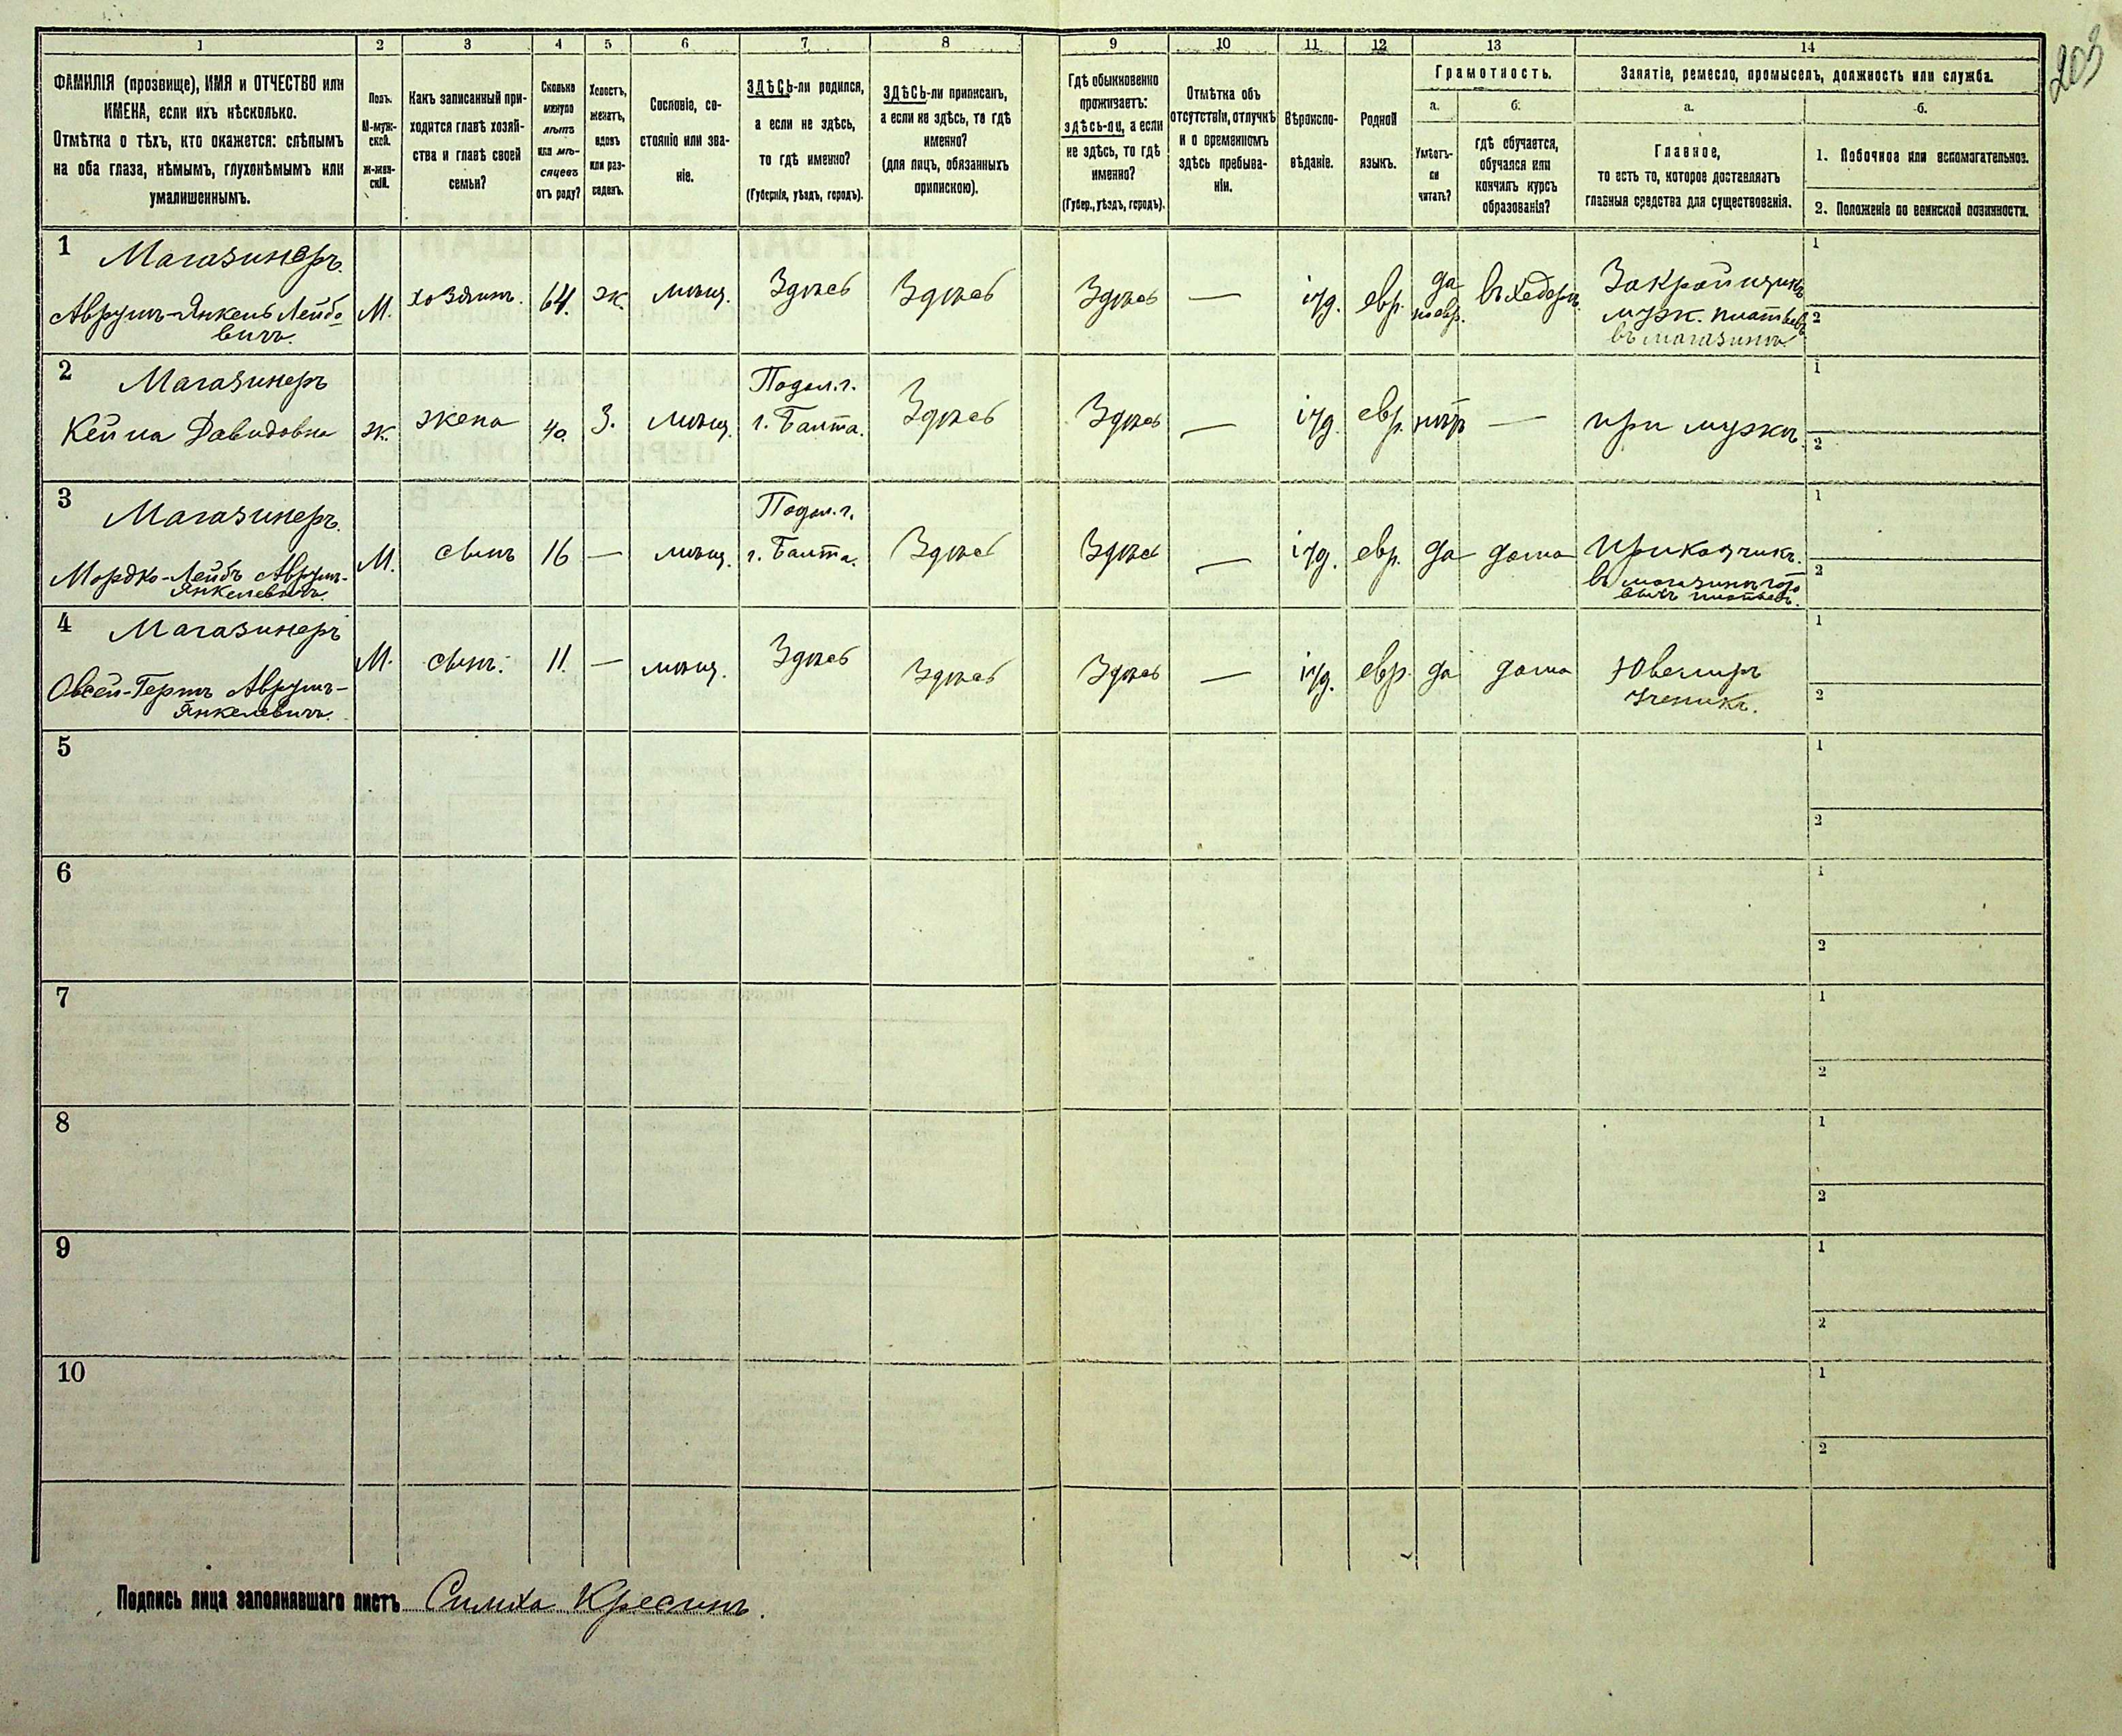 203
1 2 3 4 5 6 7 8 9 10 11 12 13 14
ФАМИЛІЯ (прозвище), ИМЯ и ОТЧЕСТВО или
ИМЕНА, если ихъ нѣсколько.
Отмѣтка о тѣхъ, кто окажется: слѣпымъ
на оба глаза, нѣмымъ, глухонѣмымъ или
умалишеннымъ.
Полъ.
М-муж-
ской.
Ж-жен-
скій.
Какъ записанный при-
ходится главѣ хозяй-
ства и главѣ своей
семьи?
Сколько
минуло
лѣтъ
или мѣ-
сяцевъ
отъ роду?
Холостъ,
женатъ,
вдовъ
или раз-
веденъ.
Сословіе, со-
стояніе или зва-
ніе.
ЗДѢСЬ-ли родился,
а если не здѣсь,
то гдѣ именно?
(Губернія, уѣздъ, городъ).
ЗДѢСЬ-ли приписанъ,
а если не здѣсь, то гдѣ
именно?
(для лицъ, обязанныхъ
припискою).
Гдѣ обыкновенно
проживаетъ:
здѣсь-ли, а если
не здѣсь, то гдѣ
именно?
(Губер., уѣздъ, городъ).
Отмѣтка объ
отсутствіи, отлучкѣ
и о временномъ
здѣсь пребыва-
ніи.
Вѣроиспо-
вѣданіе.
Родной
языкъ.
Грамотность.
а.
Умѣетъ-
ли
читать?
б.
гдѣ обучается,
обучался или
кончилъ курсъ
образованія?
Занятіе, ремесло, промыселъ, должность или служба.
а.
Главное,
то есть то, которое доставляетъ
главныя средства для существованія.
б.
1. Побочное или вспомогательное.
2. Положеніе по воинской повинности.
1 Магазинеръ
Аврумъ-Янкель Лейбо-
вичъ.
М.
хозяинъ.
64.
ж
мѣщ.
Здѣсь
Здѣсь
Здѣсь
—
іуд.
евр.
да
по евр.
въ хедерѣ
Закройщикъ
муж. платьевъ
въ магазинѣ
1
2
2 Магазинеръ
Кейла Давидовна
ж.
жена
40.
З.
мѣщ.
Подол. г.
г. Балта.
Здѣсь
Здѣсь
—
іуд.
евр.
нѣтъ
—
при мужѣ.
1
2
3 Магазинеръ
Мордко-Лейбъ Аврум-
Янкелевичъ.
М.
сынъ
16
—
мѣщ.
Подол. г.
г. Балта.
Здѣсь
Здѣсь
—
іуд.
евр.
да
дома
Приказчикъ
въ магазинѣ гото
выхъ платьевъ.
1
2
4 Магазинеръ
Овсей-Гершъ Аврумъ-
Янкелевичъ.
М.
сынъ.
11.
—
мѣщ.
Здѣсь
Здѣсь
Здѣсь
—
іуд.
евр.
да
дома
Ювелиръ
Ученикъ.
1
2
5
1
2
6
1
2
7
1
2
8
1
2
9
1
2
10
1
2
Подпись лица заполнявшаго листъ Симха Кресинъ.